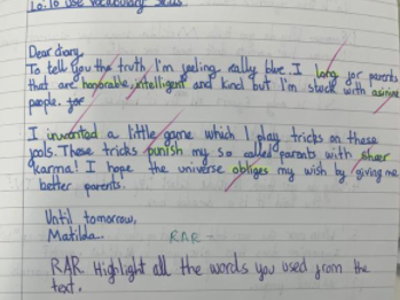 Lo: To use vocabulary skills
Dear diary,
To tell you the truth I'm feeling really blue. I long for parents
that are honorable, intelligent and kind but I'm stuck with asinine
people. for
I invented a little game which I play tricks on these
fools. These tricks punish my so called parents with sheer
karma! I hope the universe obliges my wish by giving me
better parents.
Until tomorrow,
Matilda.
RAR
RAR Highlight all the words you used from the
text.